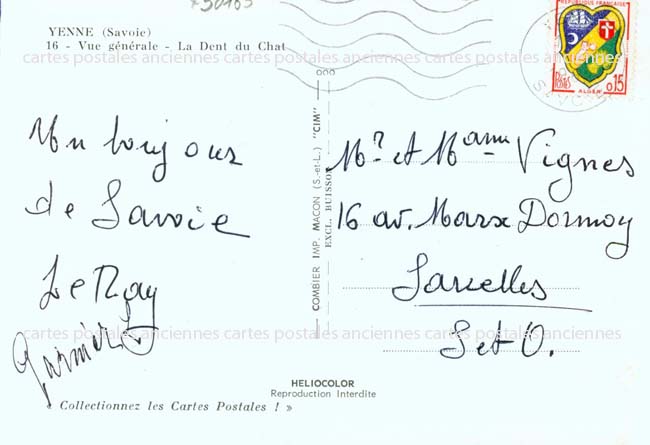 YENNE (Savoie)
16 - Vue générale - La Dent du Chat
Un bonjour
de Savoie
Le Ray
Garnier
« Collectionnez les Cartes Postales ! »
COMBIER IMP. MACON (S.-et-L.) "CIM"
EXCL. BUISSON
RÉPUBLIQUE FRANÇAISE
POSTES
0,15
ALGER
Mr et Mame Vignes
16 av. Marx Dormoy
Sarcelles
S et O.
HELIOCOLOR
Reproduction Interdite
cartes postales anciennes cartes postales anciennes cartes postales anciennes
cartes postales anciennes cartes postales anciennes cartes postales anciennes